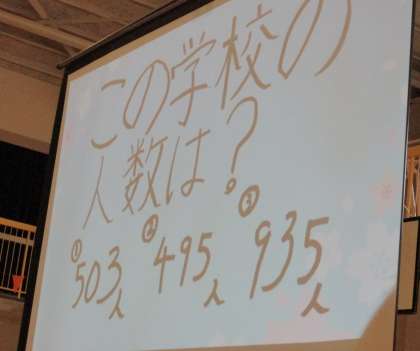 この学校の
人数は？
① 503人 ② 495人 ③ 935人